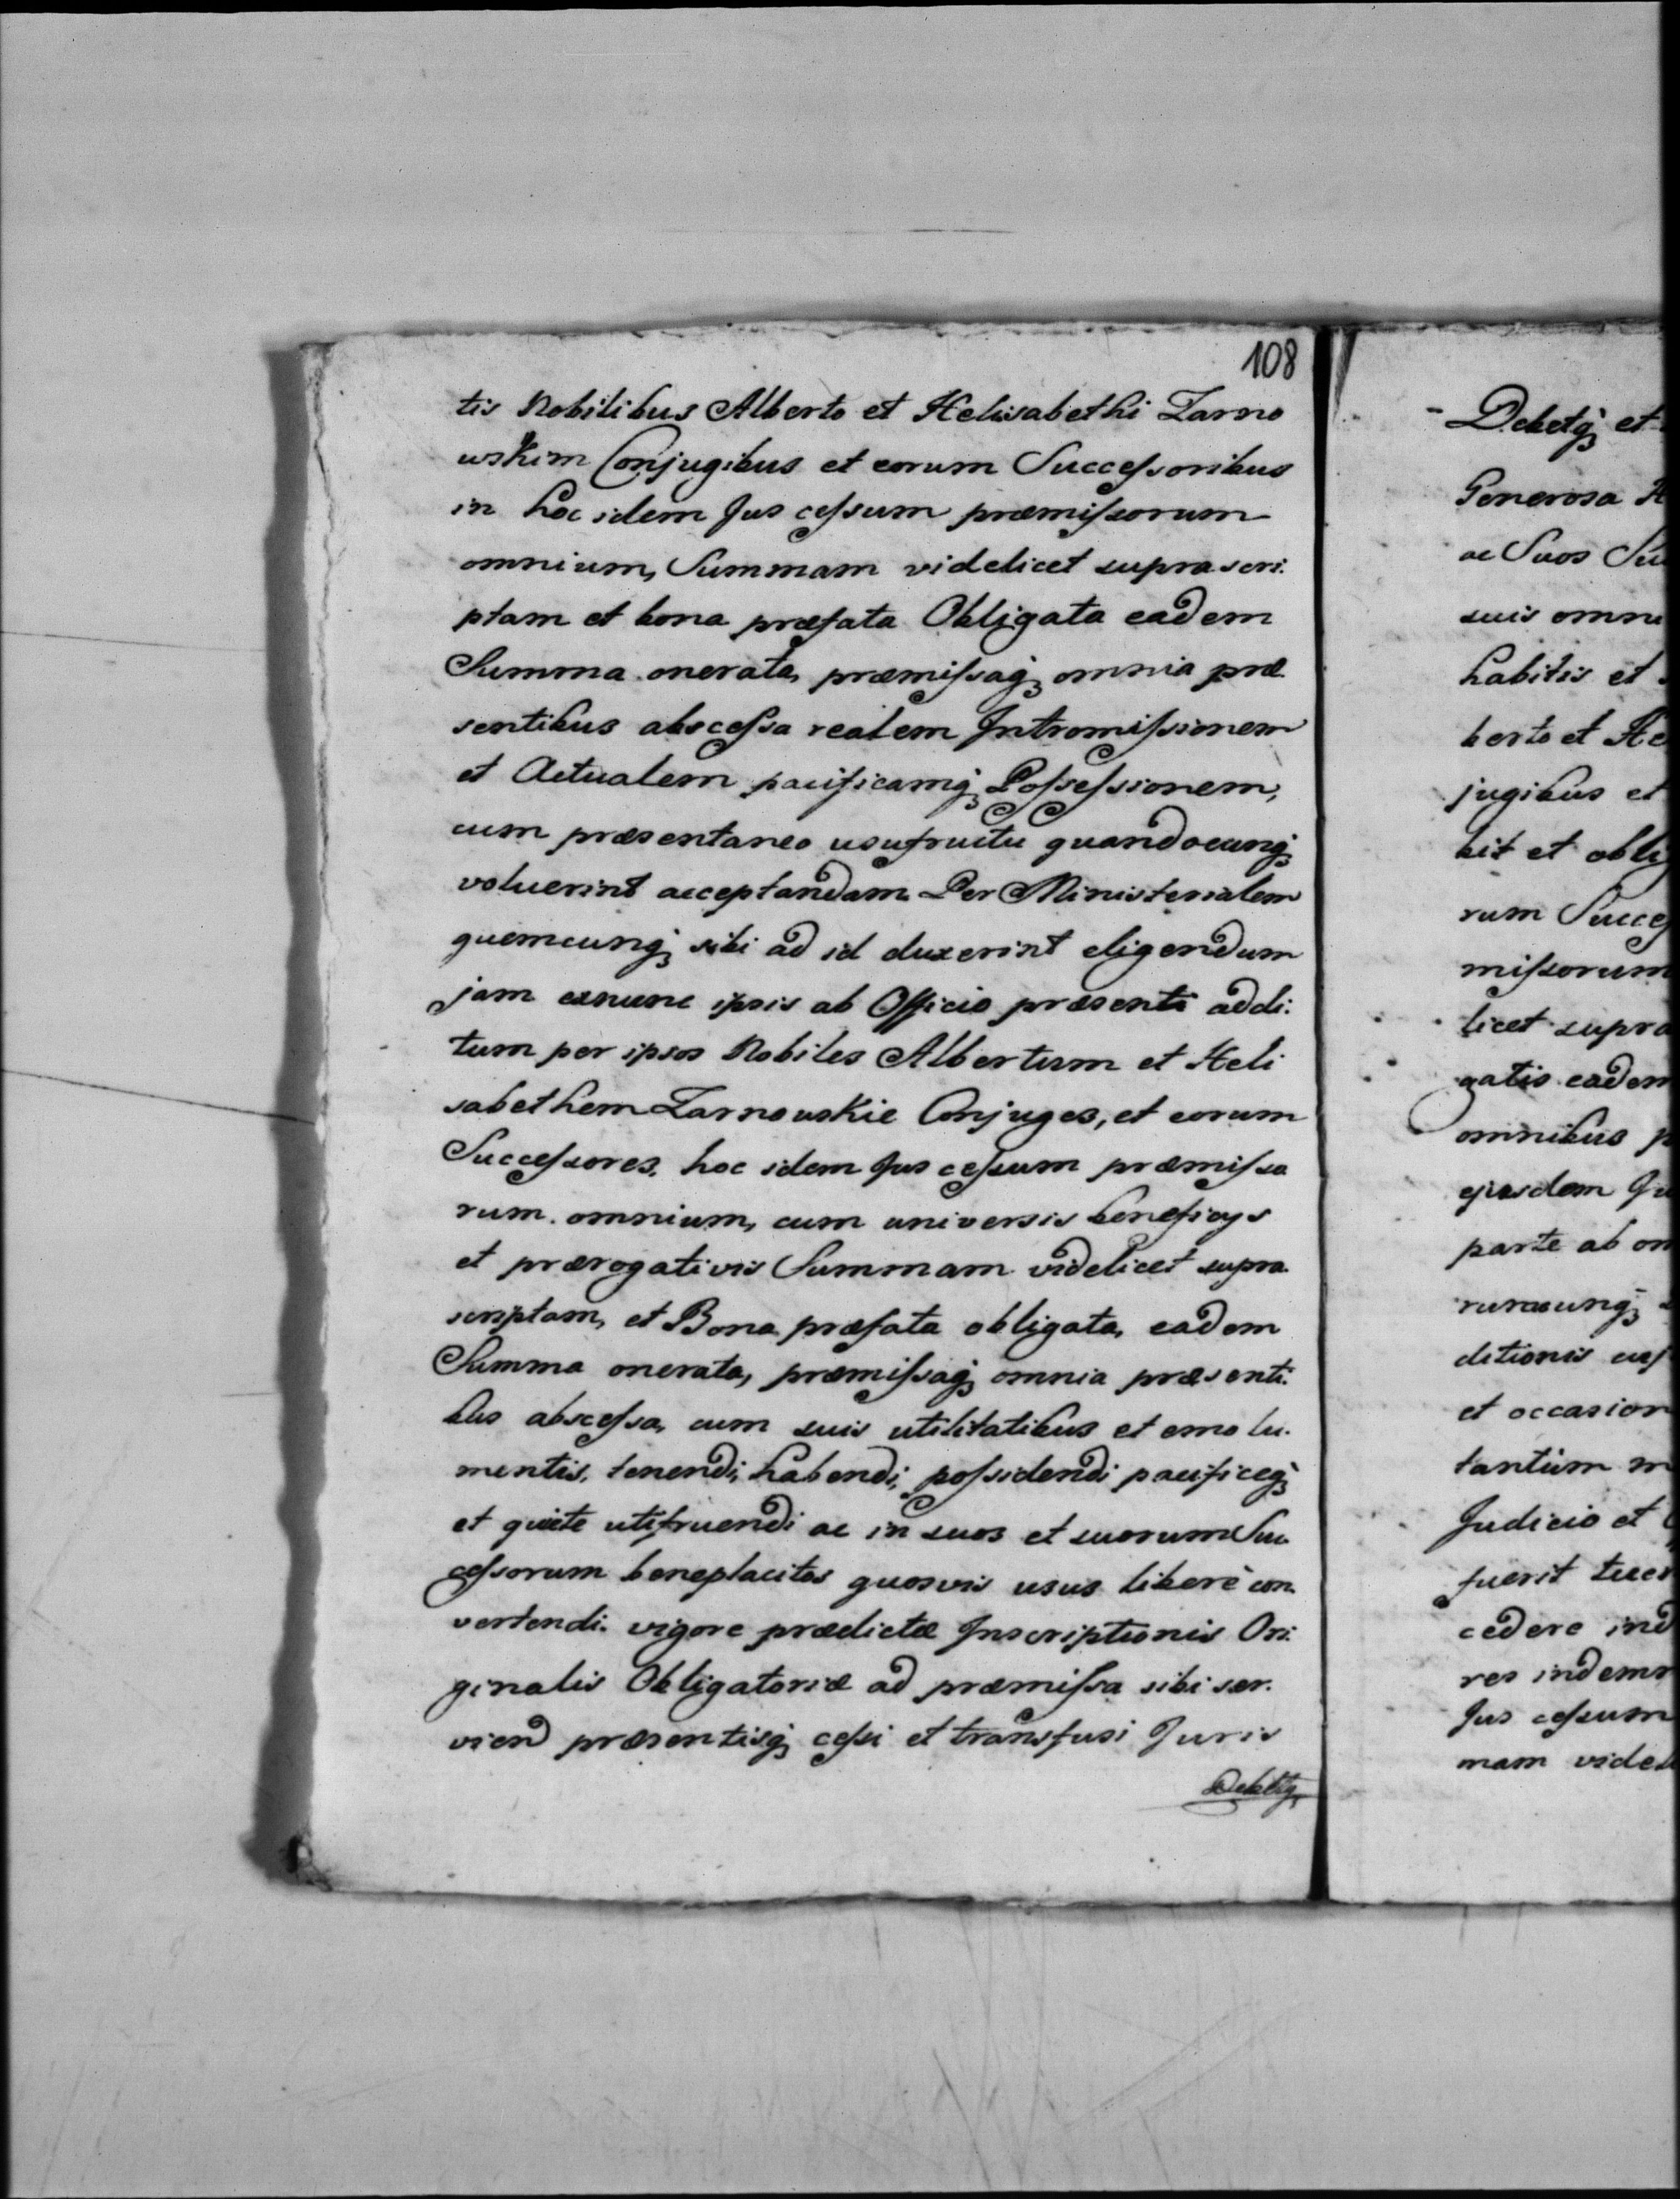 108
tis Nobilibus Alberto et Helisabethi Zarno
wskim Conjugibus et eorum Succeſsoribus
in hoc idem Jus ceſsum præmiſsorum
omnium, Summam videlicet suprascri:
ptam et bona præfata Obligata eadem
Summa onerata, præmiſsaq; omnia præ
sentibus absceſsa realem Intromiſsionem
et Actualem pacificamq; Poſseſsionem,
cum præsentaneo usufructu quandocunq;
voluerint acceptandam Per Ministerialem
quemcunq; sibi ad id duxerint eligendum
jam exnunc ipsis ab Officio præsenti addi:
tum per ipsos Nobiles Albertum et Heli
sabethem Zarnowskie Conjuges, et eorum
Succeſsores, hoc idem Jus ceſsum præmiſso
rum omnium, cum universis beneficys
et prærogativis Summam videlicet supra
scriptam, et Bona præfata obligata, eadem
Summa onerata, præmiſsaq; omnia præsenti:
bus absceſsa, cum suis utilitatibus et emolu:
mentis, tenendi, habendi, poſsidendi pacificeq;
et quiete utifruendi ac in suos et suorum Suc
ceſsorum beneplacitos quosvis usus liberè con
vertendi. vigore prædictæ Inscriptionis Ori:
ginalis Obligatoriæ ad præmiſsa sibi ser:
viend præsentisq; ceſsi et transfusi Juris
Debetq;
Debetq; et
Generosa H
ac Suos Su
suis omni
habitis et
berto et He
jugibus et
bit et oblig
rum Succeſ
miſsorum
licet supra
gatis eadem
omnibus p
ejusdem Ju
parte ab om
rumcunq;
ditionis cuj
et occasion
tantium m
Judicio et
fuerit tuer
cedere ind
res indemn
Jus ceſsum
mam videl